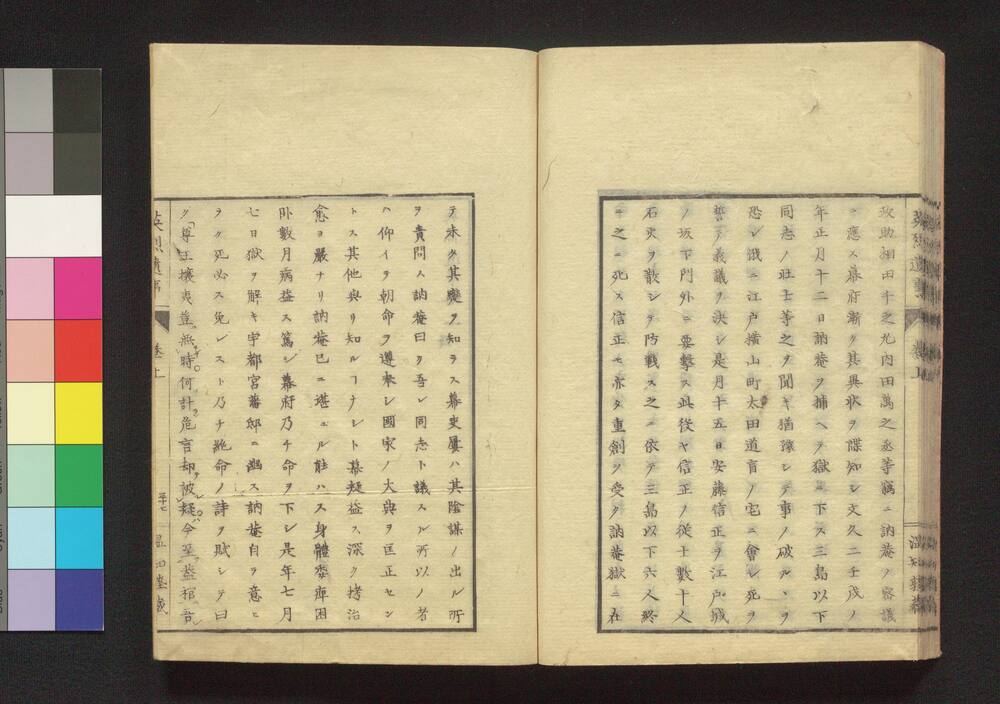 政助相田千之允内田萬之丞等竊ニ訥菴ノ密議
ニ應ス幕府漸ク其異狀ヲ諜知シ文久二壬戌ノ
年正月十二日訥菴ヲ捕ヘテ獄ニ下ス三島以下
同志ノ壯士等之ヲ聞キ猶豫シテ事ノ破ルヽヲ
恐レ竊ニ江戸横山町太田道育ノ宅ニ會シ死ヲ
誓テ義議ヲ決シ是月十五日安藤信正ヲ江戸城
ノ坂下門外ニ要撃ス此役ヤ信正ノ從士數十人
石火ヲ散シテ防戰ス之ニ依テ三島以下六人終
ニ之ニ死ス信正モ亦タ重創ヲ受ク訥菴獄ニ在
テ未タ其變ヲ知ラス幕吏屢ハ其陰謀ノ出ル所
ヲ責問ス訥菴曰ク吾レ同志ト議スル所以ノ者
ハ仰イテ朝命ヲ遵奉シ國家ノ大典ヲ匡正セン
トス其他與リ知ルコナシト幕疑益ス深ク拷治
愈ヨ嚴ナリ訥菴已ニ堪ユル能ハス身體委痺困
臥數月病益ス篤シ幕府乃チ命ヲ下シ是年七月
七日獄ヲ解キ宇都宮藩邸ニ幽ス訥菴自ラ意ヒ
ラク死必ス免レスト乃チ絶命ノ詩ヲ賦シテ曰
ク尊王攘夷豈無時何計危言却被疑今至蓋棺吾
英烈遺事 卷上